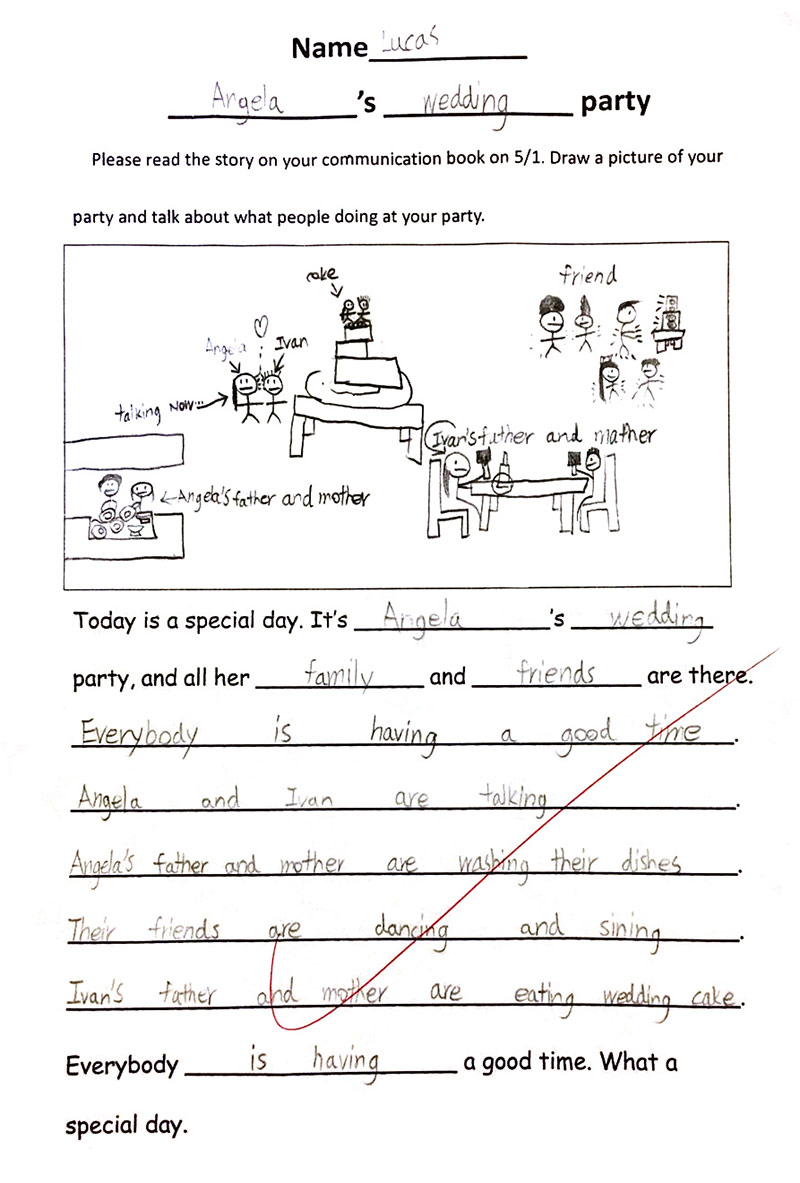 Name Lucas
Angela 's wedding party
Please read the story on your communication book on 5/1. Draw a picture of your
party and talk about what people doing at your party.
cake
friend
Angela Ivan
talking now...
Ivan's father and mather
Angela's father and mother
Today is a special day. It's Angela 's wedding
party, and all her family and friends are there.
Everybody is having a good time.
Angela and Ivan are talking.
Angela's father and mother are washing their dishes.
Their friends are dancing and sining.
Ivan's father and mother are eating wedding cake.
Everybody is having a good time. What a
special day.